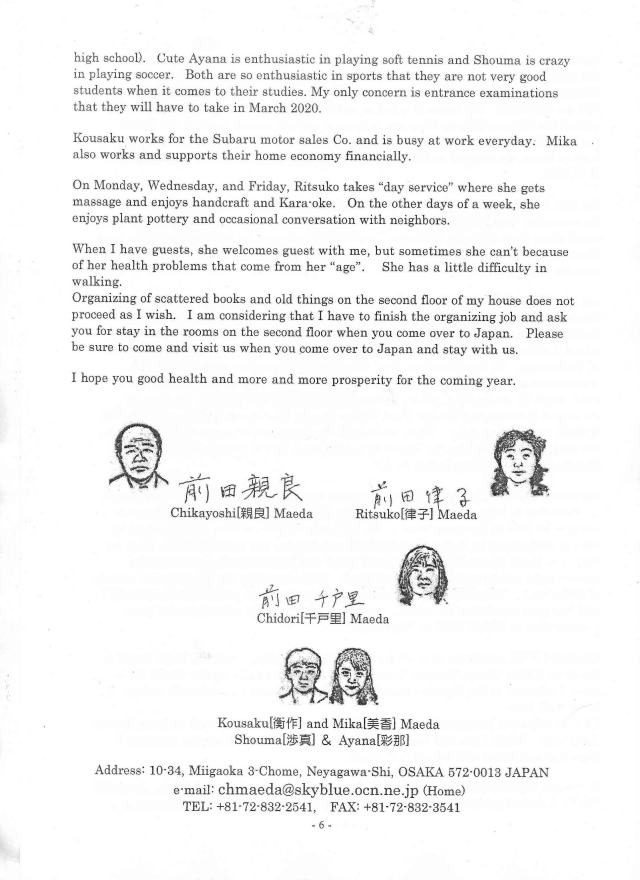 high school). Cute Ayana is enthusiastic in playing soft tennis and Shouma is crazy
in playing soccer. Both are so enthusiastic in sports that they are not very good
students when it comes to their studies. My only concern is entrance examinations
that they will have to take in March 2020.
Kousaku works for the Subaru motor sales Co. and is busy at work everyday. Mika
also works and supports their home economy financially.
On Monday, Wednesday, and Friday, Ritsuko takes “day service” where she gets
massage and enjoys handcraft and Kara-oke. On the other days of a week, she
enjoys plant pottery and occasional conversation with neighbors.
When I have guests, she welcomes guest with me, but sometimes she can't because
of her health problems that come from her “age”. She has a little difficulty in
walking.
Organizing of scattered books and old things on the second floor of my house does not
proceed as I wish. I am considering that I have to finish the organizing job and ask
you for stay in the rooms on the second floor when you come over to Japan. Please
be sure to come and visit us when you come over to Japan and stay with us.
I hope you good health and more and more prosperity for the coming year.
前田親良 前田律子
Chikayoshi[親良] Maeda Ritsuko[律子] Maeda
前田 千戸里
Chidori[千戸里] Maeda
Kousaku[衡作] and Mika[美香] Maeda
Shouma[渉真] & Ayana[彩那]
Address: 10-34, Miigaoka 3-Chome, Neyagawa-Shi, OSAKA 572-0013 JAPAN
e-mail: chmaeda@skyblue.ocn.ne.jp (Home)
TEL: +81-72-832-2541, FAX: +81-72-832-3541
- 6 -